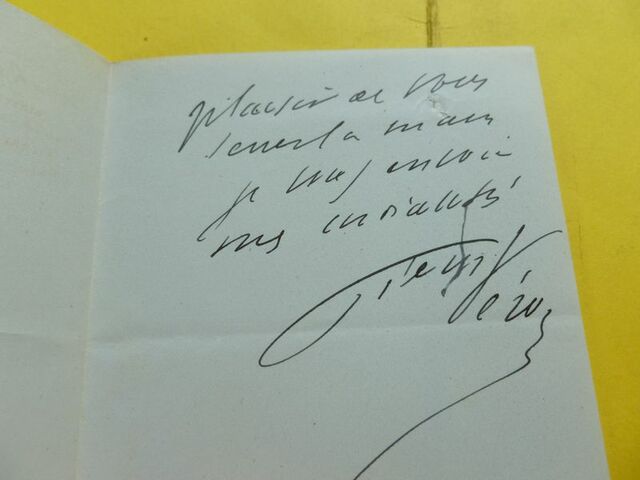 plaisir de vous
serrer la main
je vous envoie
mes cordialités
Pierre Véron